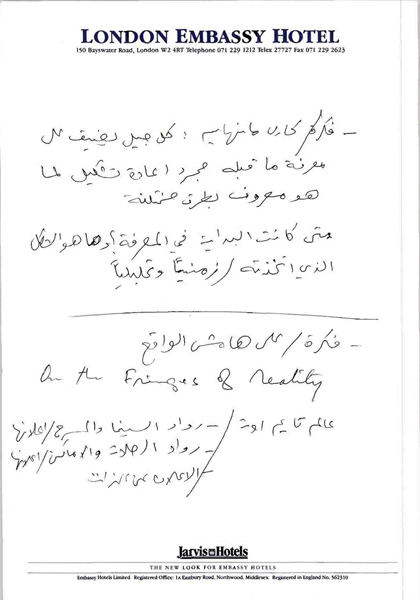 LONDON EMBASSY HOTEL
150 Bayswater Road, London W2 4RT Telephone 071 229 1212 Telex 27727 Fax 071 229 2623
كل جيل يضيف على
معرفة ما قبله مجرد اعادة تشكيل لما
هو معروف بطرق مختلفة
متى كانت البداية في المعرفة أو ما هو الشكل
الذي اتخذته / زمنياً وتحليلياً
- فكرة / على هامش الواقع
On the Fringes of Reality
عالم تايم اوت / - رواد السينما والمسرح / اعلانها
- رواد والاماكن / اعلانها
الاعلان عن الذات
Jarvis Hotels
THE NEW LOOK FOR EMBASSY HOTELS
Embassy Hotels Limited Registered Office: 1A Eastbury Road, Northwood, Middlesex Registered in England No. 562310